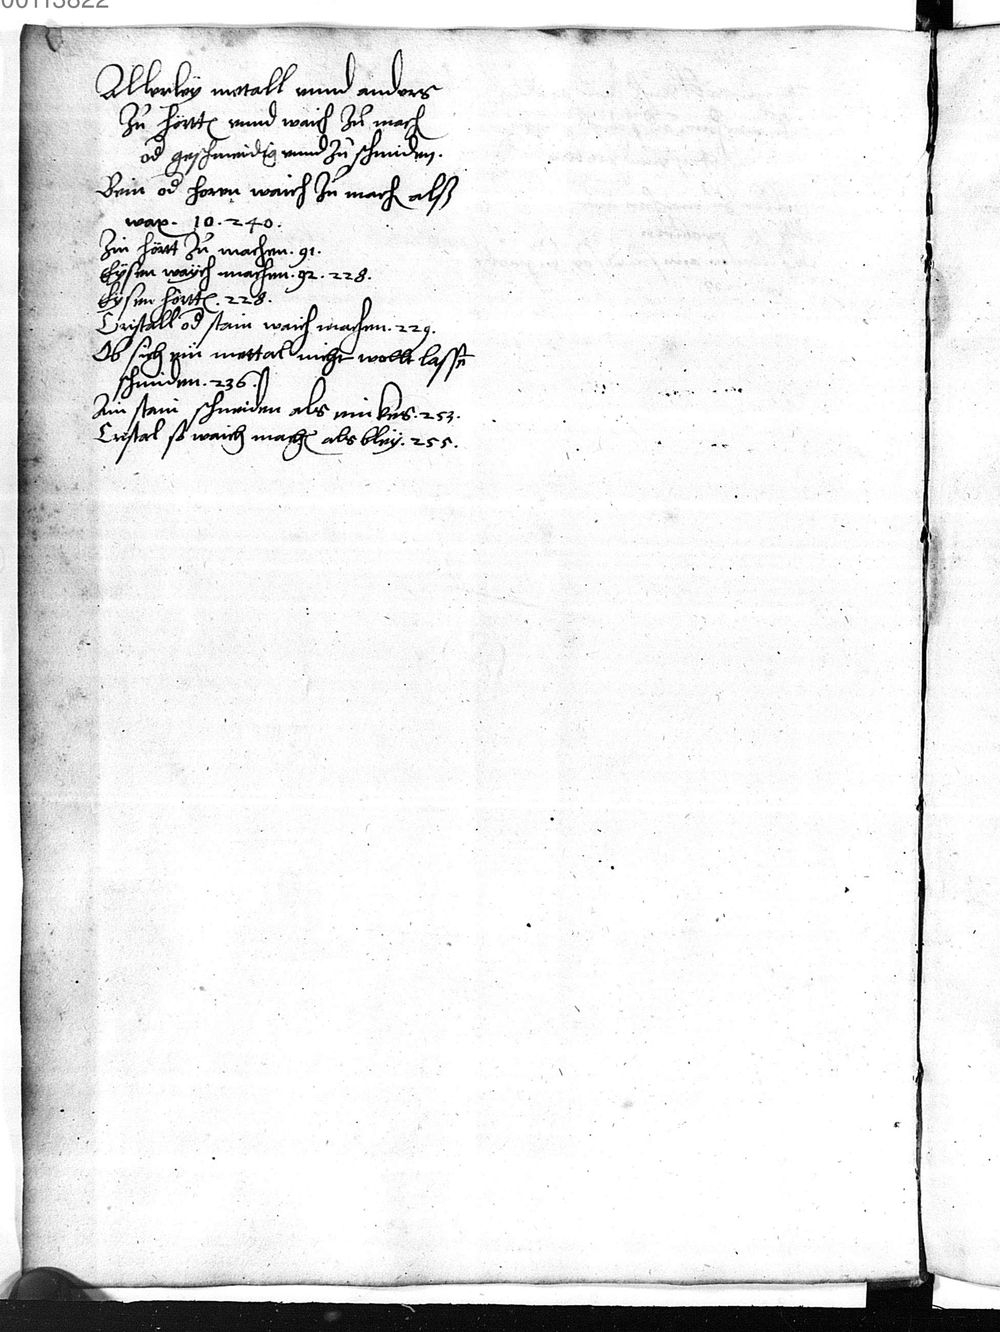 00113822
Allerleÿ metall vnnd anders
Zu hörtt vnnd waich Zu mach
od geschmeidig vnnd Zu schmiden.
Bein od horen waich Zu mach alß
wax. 10. 240.
Zin hörtt Zu machen. 91.
Eÿsen waÿch machen. 92. 228.
Eÿsen hörtt. 228.
Cristall od stain waich machen. 229.
Ob sich ein mettal nicht wollt lassē
schmiden. 236.
Ain stain schneiden als ein kes. 253.
Cristal so waich mach als bleÿ. 255.